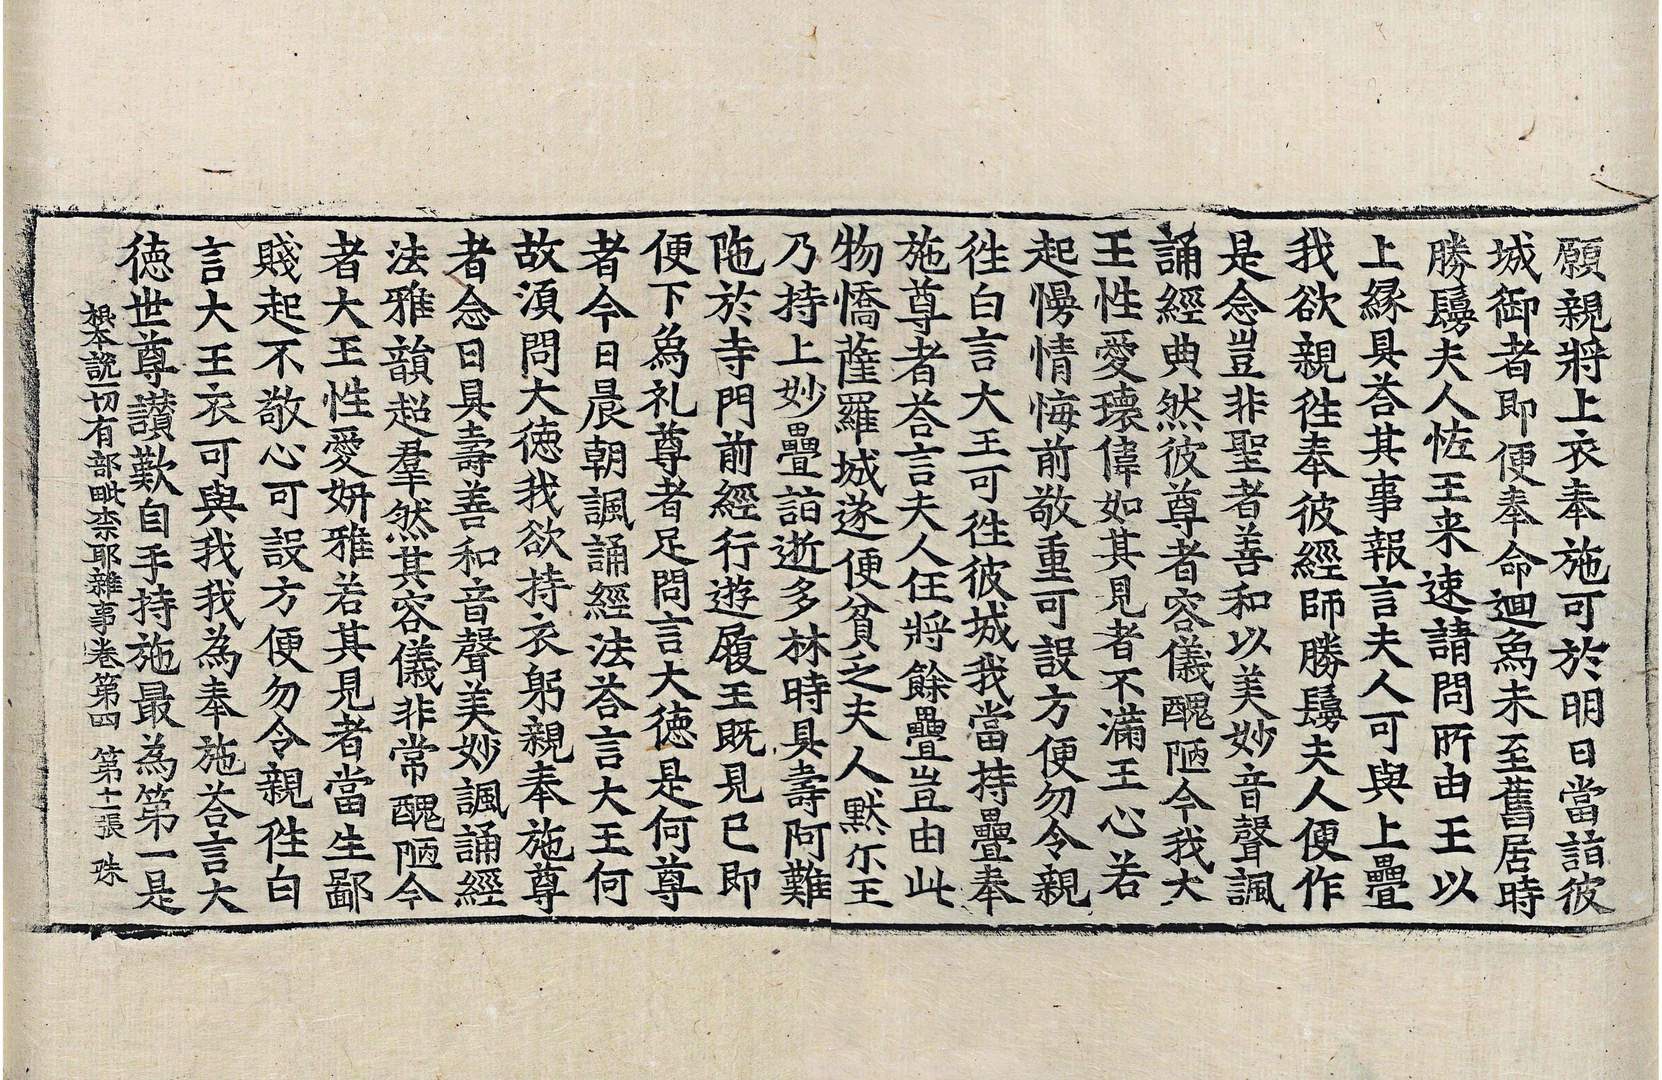 願親將上衣奉施可於明日當詣彼
城御者即便奉命迴為未至舊居時
勝鬘夫人恠王来速請問所由王以
上緣具荅其事報言夫人可與上疊
我欲親徃奉彼經師勝鬘夫人便作
是念豈非聖者善和以美妙音聲諷
誦經典然彼尊者容儀醜陋今我大
王性愛瓌偉如其見者不滿王心若
起慢情悔前敬重可設方便勿令親
徃白言大王可徃彼城我當持疊奉
施尊者荅言夫人任將餘疊豈由此
物憍薩羅城遂便貧乏夫人默尒王
乃持上妙疊詣逝多林時具壽阿難
陁於寺門前經行遊履王既見已即
便下為礼尊者足問言大徳是何尊
者今日晨朝諷誦經法荅言大王何
故湏問大徳我欲持衣躬親奉施尊
者念曰具壽善和音聲美妙諷誦經
法雅韻超羣然其容儀非常醜陋今
者大王性愛妍雅若其見者當生鄙
賤起不敬心可設方便勿令親徃白
言大王衣可與我我為奉施荅言大
徳世尊讃歎自手持施最為第一是
根本說一切有部毗奈耶雜事卷第四 第十二張 珠